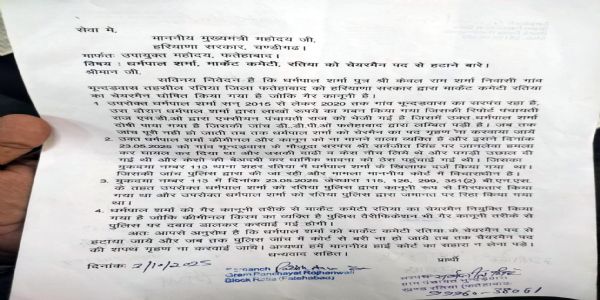 सेवा में,
माननीय मुख्यमंत्री महोदय जी,
हरियाणा सरकार, चण्डीगढ़।
मार्फत: उपायुक्त महोदय, फतेहाबाद।
विषय : धर्मपाल शर्मा, मार्केट कमेटी, रतिया को चेयरमैन पद से हटाने बारे।
श्रीमान जी,
सविनय निवेदन है कि धर्मपाल शर्मा पुत्र श्री केवल राम शर्मा निवासी गांव
तहसील रतिया जिला फतेहाबाद को हरियाणा सरकार द्वारा मार्केट कमेटी रतिया
का चेयरमैन घोषित किया गया है जोकि गैर कानूनी है।
1. उपरोक्त धर्मपाल शर्मा सन् 2015 से लेकर 2020 तक गांव का सरपंच रहा है,
उस दौरान धर्मपाल शर्मा द्वारा लाखों रूपये का गबन किया गया जिसकी रिपोर्ट पंचायती
राज एस.डी.ओ द्वारा एक्सीयन पंचायती राज को भेजी गई है जिसमें उक्त धर्मपाल शर्मा
दोषी पाया गया है जिसकी जांच डी.डी.पी.ओ फतेहाबाद द्वारा लम्बित पड़ी है। जब तक
जांच पूरी नहीं हो जाती तब तक धर्मपाल को चेयरमैन का पद गृहण ना करवाया जाये
2. उक्त धर्मपाल शर्मा और कानून को ना मानने वाला व्यक्ति है और इसने दिनांक
23.05.2025 को गांव के मौजूदा सरपंच श्री सर्वजीत सिंह पर जानलेवा हमला
कर घायल कर दिया था और उसकी दाढ़ी व केस नोच लिये थे और पगड़ी उछाल दी
गई थी और केसों की बेअदबी कर धार्मिक भावना को ठेस पहुंचाई गई थी। जिसका
मुकदमा नम्बर 113 थाना शहर रतिया में धर्मपाल शर्मा के खिलाफ दर्ज किया गया था।
जिसकी जांच पुलिस द्वारा की जा रही और मामला माननीय कोर्ट में विचाराधीन है।
3. मुकदमा नम्बर 113 में दिनांक 23.05.2025 जेरधारा 115, 126, 299, 351(2) बी.एन.एस.
के तहत उपरोक्त धर्मपाल शर्मा को रतिया पुलिस द्वारा कानूनी रूप से गिरफ्तार किया
गया था और उपरोक्त धर्मपाल शर्मा को रतिया पुलिस द्वारा जमानत पर रिहा किया गया
था।
4. धर्मपाल शर्मा को गैर कानूनी तरीके से मार्केट कमेटी रतिया का चेयरमैन नियुक्ति किया
गया है जोकि क्रीमीनल किस्म का व्यक्ति है पुलिस वैरीफिकेशन भी गैर कानूनी तरीके से
पुलिस पर दबाव डालकर करवाई गई होगी।
अतः आपसे अनुरोध है कि धर्मपाल शर्मा को मार्केट कमेटी रतिया के चेयरमैन पद से
हटाया जाये और जब तक पुलिस जांच में कोर्ट से बरी ना हो जाये तब तक चेयरमैन पद
की शपथ गृहण ना करवाई जाये। अन्यथा हमें माननीय हाई कोर्ट का सहारा न लेना पड़े।
धन्यवाद सहित।
प्रार्थी
दिनांक: 3/10/2025
Sarpanch
Gram Panchayat Rojhanwali
Block Ratia (Fatehabad)
सरपंच
ग्राम पंचायत
खण्ड रतिया (फतेहाबाद)